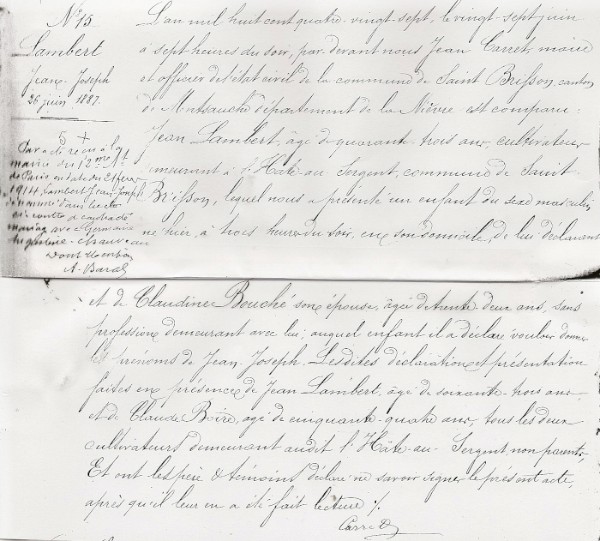 N° 15
Lambert
Jean-Joseph
26 juin 1887.
5 +
Par acte reçu à la
mairie du 12me Art
de Paris en date du 21
1914, Lambert Jean-Joseph
dénommé dans l'acte
ci contre a contracté
mariage avec Germaine
Augustine
Dont Mention
A. Baral
L'an mil huit cent quatre-vingt-sept, le vingt-sept juin
à sept heures du soir, par devant nous Jean Carré, maire
et officier de l'état civil de la commune de Saint Brisson, canton
de Montsauche département de la Nièvre est comparu
Jean Lambert, âgé de quarante-trois ans, cultivateur,
demeurant à l'Hâte-au Sergent, commune de Saint
Brisson, lequel nous a présenté un enfant du sexe masculin
né hier, à trois heures du soir, en son domicile, de lui déclarant
et de Claudine Bouché son épouse, âgée de trente deux ans, sans
profession demeurant avec lui, auquel enfant il a déclaré vouloir donner
les prénoms de Jean-Joseph. Lesdites déclaration et présentation
faites en présence de Jean Lambert, âgé de soixante-trois ans
et de Claude Boire, âgé de cinquante-quatre ans, tous les deux
cultivateurs demeurant audit l'Hâte-au-Sergent non parents,
Et ont les père & témoins déclaré ne savoir signer le présent acte,
après qu'il leur en a été fait lecture ./.
Carré